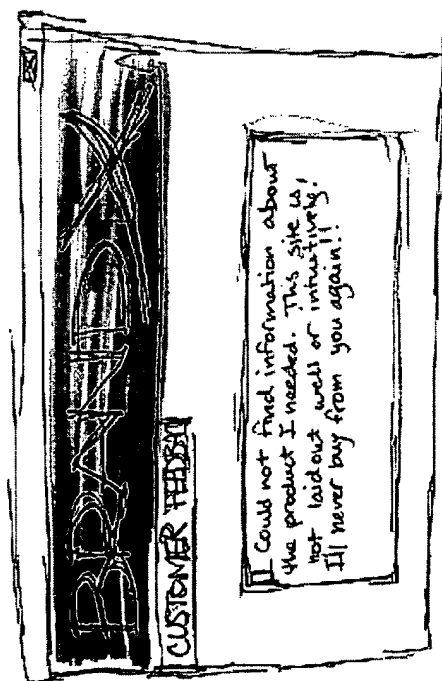 BRAND X
CUSTOMER FEEDBACK
I Could not find information about
the product I needed. This site is
not laid out well or intuitively.
I'll never buy from you again!!